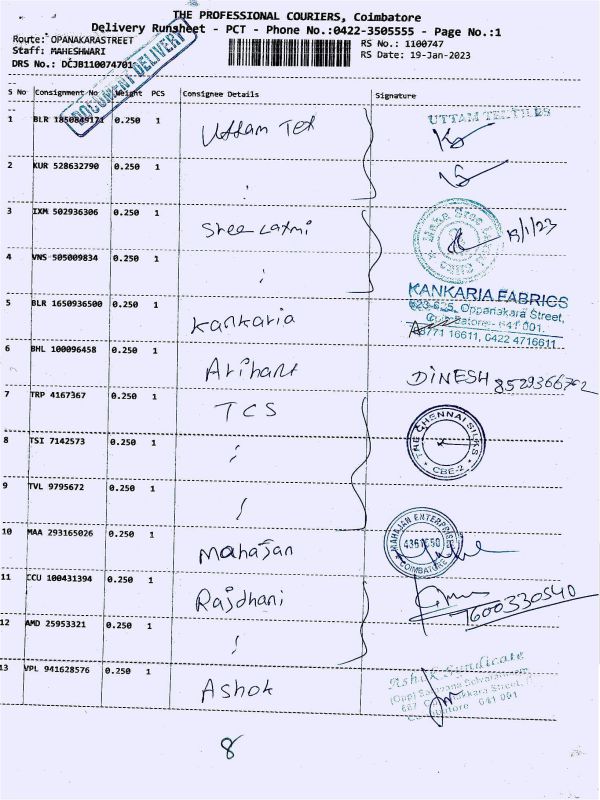 THE PROFESSIONAL COURIERS, Coimbatore
Delivery Runsheet - PCT - Phone No.:0422-3505555 - Page No.:1
Route: OPANAKARASTREET
RS No.: 1100747
Staff: MAHESHWARI
RS Date: 19-Jan-2023
DRS No.: DCJB110074701
DOCUMENT DELIVERY
S No Consignment No Weight PCS Consignee Details Signature
1 BLR 1850849171 0.250 1 Uttam Tex UTTAM TEXTILES
2 KUR 528632790 0.250 1
3 IXM 502936306 0.250 1 Sree Laxmi 19/1/23
4 VNS 505009834 0.250 1
5 BLR 1650936500 0.250 1 Kankaria KANKARIA FABRICS
Oppanakara Street,
Coimbatore - 641 001.
16611, 0422 4716611
6 BHL 100096458 0.250 1 Arihant DINESH
7 TRP 4167367 0.250 1 TCS THE CHENNAI SILKS
CBE-2
8 TSI 7142573 0.250 1
9 TVL 9795672 0.250 1
10 MAA 293165026 0.250 1 Mahajan MAHAJAN ENTERPRISES
COIMBATORE
11 CCU 100431394 0.250 1 Rajdhani
7600330540
12 AMD 25953321 0.250 1
13 VPL 941628576 0.250 1 Ashok Ashok Syndicate
641 001
8